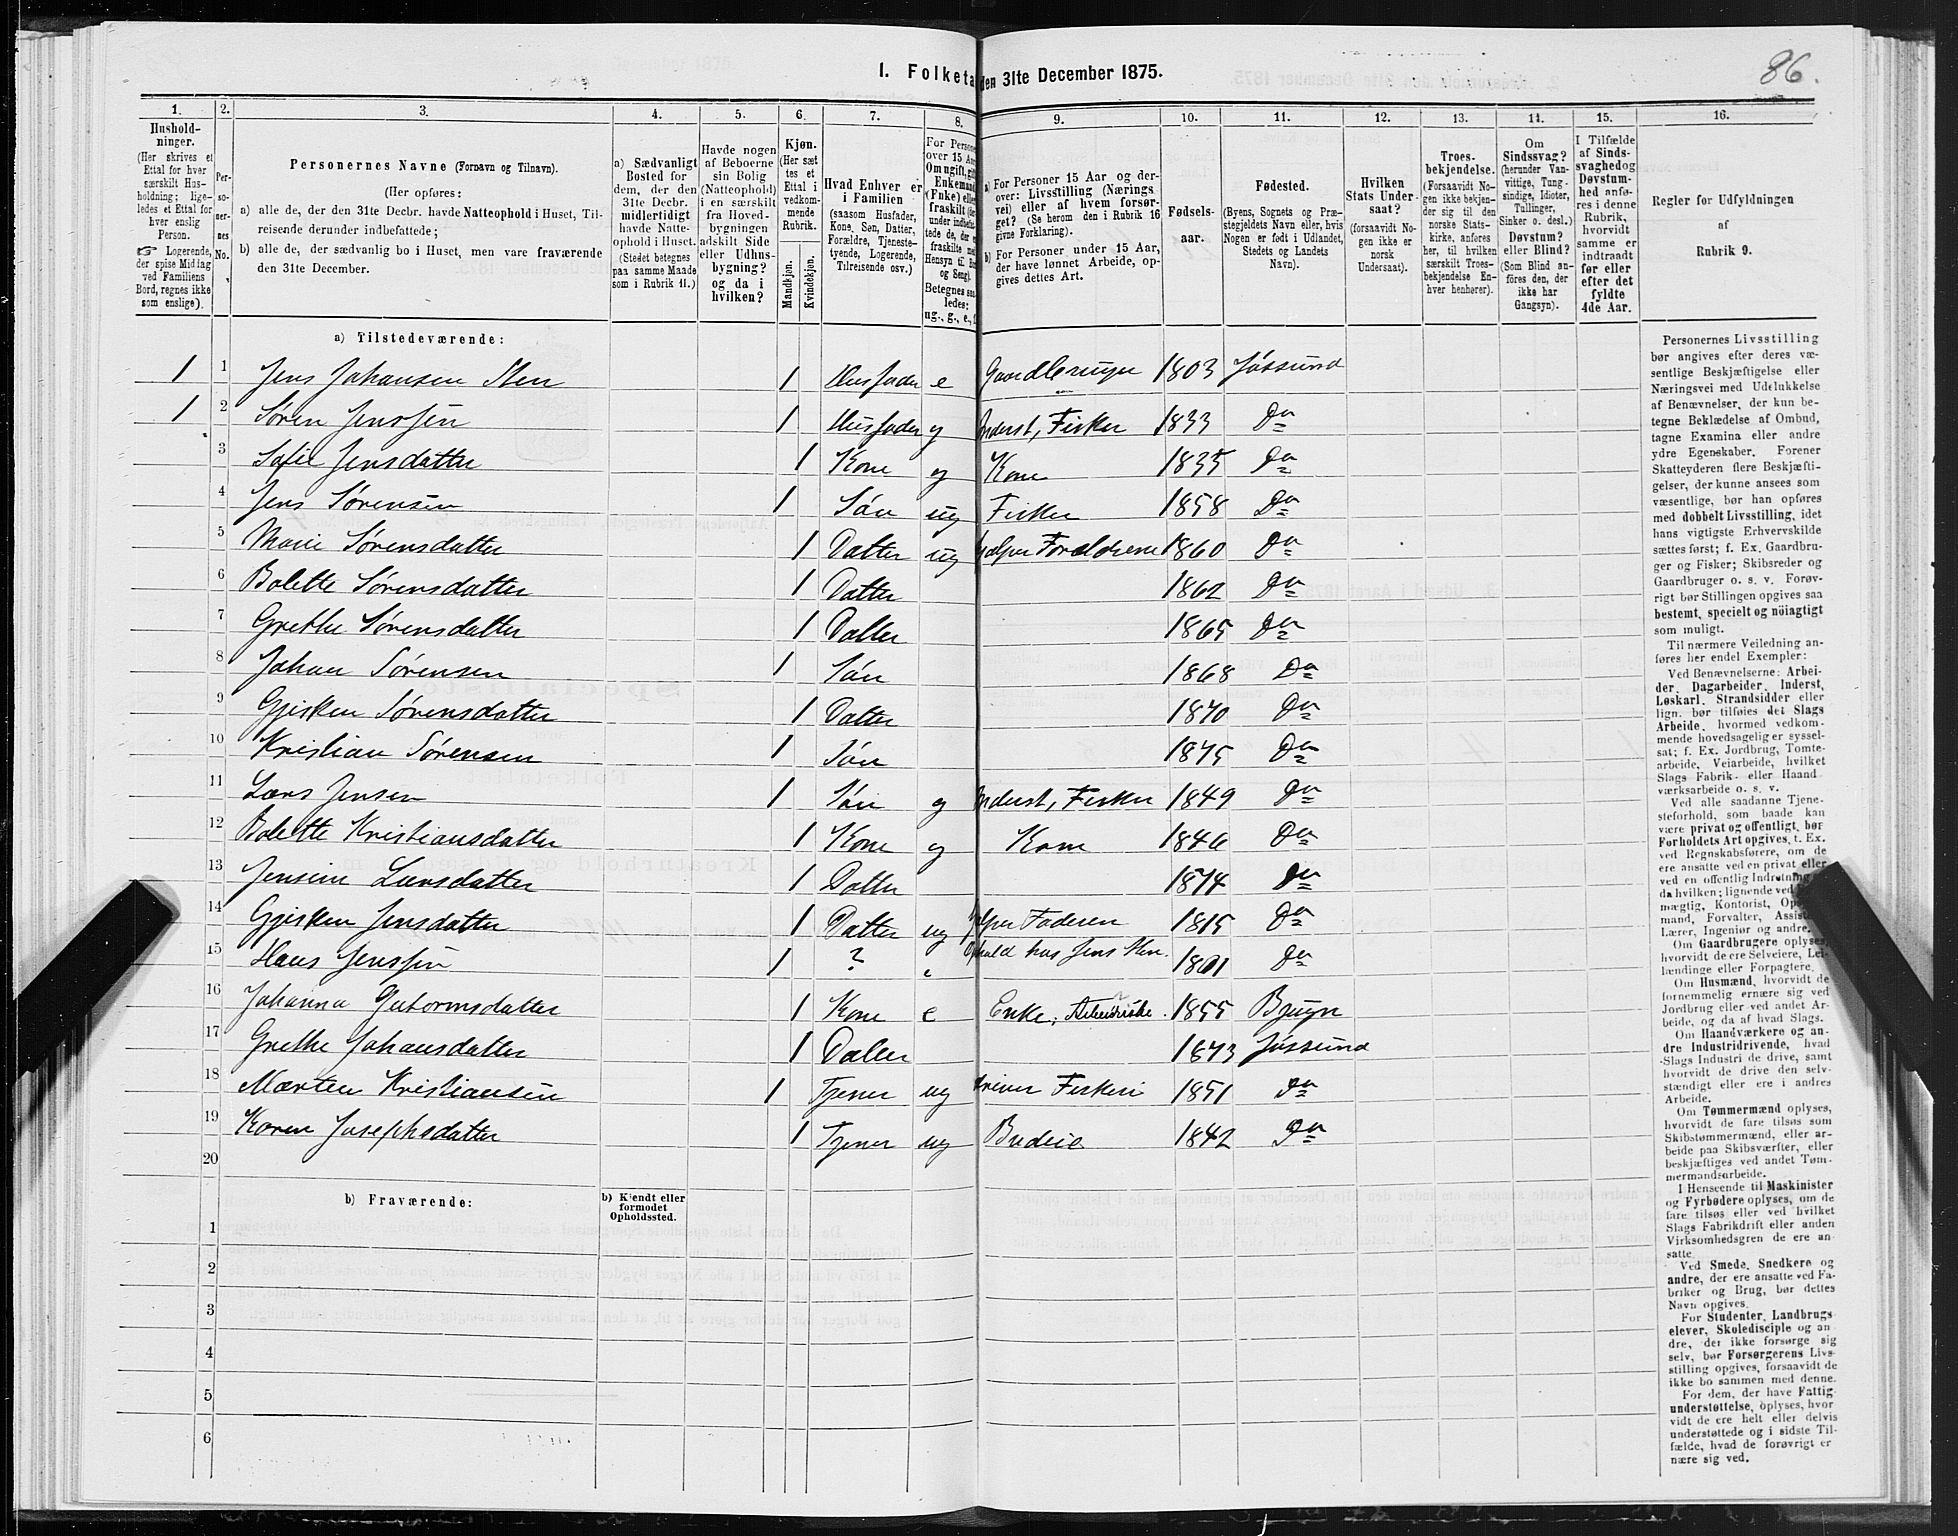 86.
I. Folketa den 31te December 1875.
1. 2. 3. 4. 5. 6. 7. 8. 9. 10. 11. 12. 13. 14. 15. 16.
Hushold-
ninger.
(Her skrives et
Ettal for hver
særskilt Hus-
holdning; lige-
ledes et Ettal for
hver enslig
Person.
Logerende,
der spise Middag
ved Familiens
Bord, regnes ikke
som enslige).
Per-
so-
ner-
nes
No.
Personernes Navne (Fornavn og Tilnavn).
(Her opføres:
a) alle de, der den 31te Decbr. havde Natteophold i Huset, Til-
reisende derunder indbefattede;
b) alle de, der sædvanlig bo i Huset, men vare fraværende
den 31te December.
a) Sædvanligt
Bosted for
dem, der den
31te Decbr.
midlertidigt
havde Natte-
ophold i Huset.
(Stedet betegnes
paa samme Maade
som i Rubrik 11.)
Havde nogen
af Beboerne
sin Bolig
(Natteophold)
i en særskilt
fra Hoved-
bygningen
adskilt Side
eller Udhus-
bygning?
og da i
hvilken?
Kjøn.
(Her sæt
tes et
Ettal i
vedkom-
mende
Rubrik.
Mandkjøn.
Kvindekjøn.
Hvad Enhver er
i Familien
(saasom Husfader,
Kone, Søn, Datter,
Forældre, Tjeneste-
tyende, Logerende,
Tilreisende osv.)
For Persone
over 15 Aar
Om ugift, gift,
Enkemand
(Enke) eller
fraskilt
Betegnes saa
ledes:
ug., g., e., f.
a) For Personer 15 Aar og der-
over: Livsstilling (Nærings
vei) eller af hvem forsør-
get? (Se herom den i Rubrik 16
givne Forklaring).
b) For Personer under 15 Aar,
der have lønnet Arbeide, op-
gives dettes Art.
Fødsels-
aar.
Fødested.
(Byens, Sognets og Præ-
stegjeldets Navn eller, hvis
Nogen er født i Udlandet,
Stedets og Landets
Navn).
Hvilken
Stats Under-
saat?
(forsaavidt No-
gen ikke er
norsk
Undersaat).
Troes-
bekjendelse.
(Forsaavidt No-
gen ikke bekjen-
der sig til den
norske Stats-
kirke, anføres
her, til hvilken
særskilt Troes-
bekjendelse En-
hver henhører).
Om
Sindssvag?
(herunder Van-
vittige, Tung-
sindige, Idioter,
Tullinger,
Sinker o. desl.)
Døvstum?
eller Blind?
(Som Blind an-
føres den, der
ikke har
Gangsyn).
I Tilfælde
af Sinds-
svaghed og
Døvstum-
hed anfø-
res i denne
Rubrik,
hvorvidt
samme er
indtraadt
før eller
efter det
fyldte
4de Aar.
Regler for Udfyldningen
af
Rubrik 9.
a) Tilstedeværende:
1 1 Jens Johansen Sten 1 Husfader e Gaardbruger 1803 Jøssund
1 2 Søren Jenssen 1 Husfader g Inderst, Fisker 1833 Do
3 Sofie Jensdatter 1 Kone g Kone 1835 Do
4 Jens Sørensen 1 Søn ug Fisker 1858 Do
5 Marie Sørensdatter 1 Datter ug hjælper Forældrene 1860 Do
6 Bolette Sørensdatter 1 Datter 1862 Do
7 Grethe Sørensdatter 1 Datter 1865 Do
8 Johan Sørensen 1 Søn 1868 Do
9 Gjisken Sørensdatter 1 Datter 1870 Do
10 Kristian Sørensen 1 Søn 1875 Do
11 Lars Jensen 1 Søn g Inderst, Fisker 1849 Do
12 Bolette Kristiansdatter 1 Kone g Kone 1846 Do
13 Jensine Larsdatter 1 Datter 1874 Do
14 Gjisken Jensdatter 1 Datter ug hjelper Faderen Do
15 Hans Jenssen 1 ? e hos Jens Sten. Do
16 Johanna Gutormsdatter 1 Kone e Enke, Arbeiderske. Bjugn
17 Grethe Johansdatter 1 Datter 1873 Jøssund
18 Morten Kristiansen 1 Tjener ug driver Fiskeri 1851 Do
19 Karen Josephsdatter 1 Tjener ug Budeie 1842 Do
20
b) Fraværende:
b) Kjendt eller
formodet
Opholdssted.
1
2
3
4
5
6
Personernes Livsstilling
bør angives efter deres væ-
sentlige Beskjæftigelse eller
Næringsvei med Udelukkelse
af Benævnelser, der kun be-
tegne Beklædelse af Ombud,
tagne Examina eller andre
ydre Egenskaber. Forener
Skatteyderen flere Beskjæfti-
gelser, der kunne ansees som
væsentlige, bør han opføres
med dobbelt Livsstilling, idet
hans vigtigste Erhvervskilde
sættes først; f. Ex. Gaardbru-
ger og Fisker; Skibsreder og
Gaardbruger o. s. v. Forøv-
rigt bør Stillingen opgives saa
bestemt, specielt og nöiagtigt
som muligt.
Til nærmere Veiledning an-
føres her endel Exempler:
Ved Benævnelserne: Arbei-
der, Dagarbeider, Inderst,
Løskarl, Strandsidder eller
lign. bør tilføies det Slags
Arbeide, hvormed vedkom-
mende hovedsagelig er syssel-
sat; f. Ex. Jordbrug, Tomte-
arbeide, Veiarbeide, hvilket
Slags Fabrik- eller Haand
værksarbeide o. s. v.
Ved alle saadanne Tjene-
steforhold, som baade kan
være privat og offentligt, bør
Forholdets Art opgives, t. Ex.
ved Regnskabsførere, om de
ere ansatte ved en privat eller
ved en offentlig Indretning
da hvilken; lignende ved
mægtig, Kontorist,
mand, Forvalter,
Lærer, Ingeniør og andre.
Om Gaardbrugere oplyses,
hvorvidt de ere Selveiere, Lei-
lændinge eller Forpagtere.
Om Husmænd, hvorvidt de
fornemmelig ernære sig ved
Jordbrug eller ved andet Ar-
beide, og da af hvad Slags.
Om Haandværkere og an-
dre Industridrivende, hvad
Slags Industri de drive, samt
hvorvidt de drive den selv-
stændigt eller ere i andres
Arbeide.
Om Tømmermænd oplyses,
hvorvidt de fare tilsøs som
Skibstømmermænd, eller ar-
beide paa Skibsværfter, eller
beskjæftiges ved andet Tøm-
mermandsarbeide.
I Henseende til Maskinister
og Fyrbødere oplyses, om de
fare tilsøs eller ved hvilket
Slags Fabrikdrift eller anden
Virksomhedsgren de ere an-
satte.
Ved Smede, Snedkere og
andre, der ere ansatte ved Fa-
briker og Brug, bør dettes
Navn opgives.
For Studenter, Landbrugs
elever, Skoledisciple og an-
dre, der ikke forsørge sig
selv, bør Forsørgerens Livs-
stilling opgives, forsaavidt de
ikke bo sammen med denne.
For dem, der have Fattig-
understøttelse, oplyses, hvor
vidt de ere helt eller delvis
understøttede og i sidste Til-
fælde, hvad de forøvrigt er
nære sig ved.